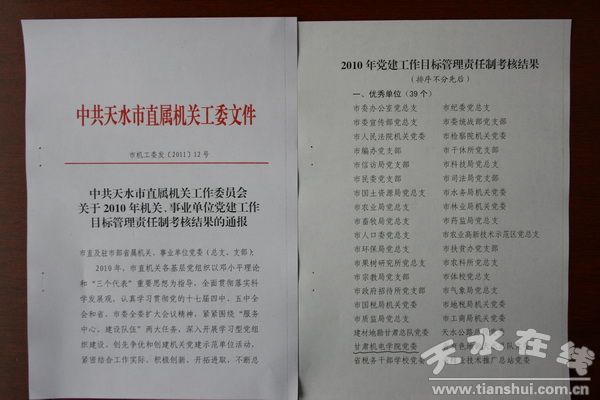 中共天水市直属机关工委文件
市机工委发〔2011〕12号
中共天水市直属机关工作委员会
关于2010年机关、事业单位党建工作
目标管理责任制考核结果的通报
市直及驻市部省属机关、事业单位党委（总支、支部）：
2010年，市直机关各基层党组织以邓小平理论
和“三个代表”重要思想为指导，全面贯彻落实科
学发展观，认真学习贯彻党的十七届四中、五中全
会和省、市委全委扩大会议精神，紧紧围绕“服务
中心、建设队伍”两大任务，深入开展学习型党组
织建设、创先争优和创建机关党建示范单位活动，
紧密结合工作实际，积极创新，开拓进取，不断总
2010年党建工作目标管理责任制考核结果
（排序不分先后）
一、优秀单位（39个）
市委办公室党总支 市纪委党总支
市委宣传部党总支 市委统战部党支部
市人民法院机关党委 市检察院机关党委
市编办党支部 市干休所党支部
市信访局党支部 市科技局党总支
市民委党支部 市司法局党总支
市国土资源局党总支 市水务局机关党委
市农业局党总支 市林业局机关党委
市畜牧局党总支 市药监局党总支
市人口委党总支 市农业高新技术示范区党总支
市环保局党总支 市扶贫办党支部
市果树研究所党总支 市农科所党总支
市宗教局党支部 市体校党总支
市政府招待所党支部 市气象局党总支
市国税局机关党委 市地税局机关党委
市质监局党总支 市工商局机关党委
建材地勘甘肃总队党委 天水公路总
甘肃机电学院党委
省税务干部学校党委 技术推广总站党委
天水在线
www.tianshui.com.cn